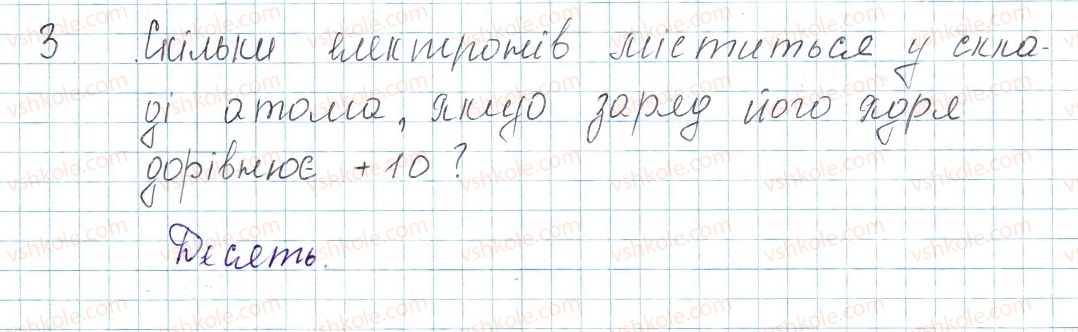 3 Скільки електронів міститься у скла-
ді атома, якщо заряд його ядра
дорівнює +10?
Десять.